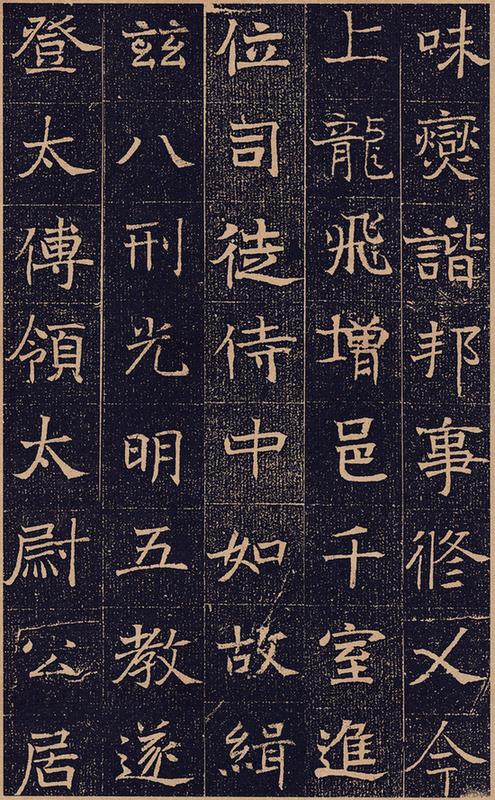 味燮諧邦事修乂今
上龍飛增邑千室進
位司徒侍中如故緝
玆八刑光明五教遂
登太傅領太尉公居